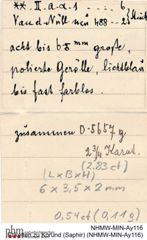 **. II. a. 1 - - -
v. and. Null inv 488 --
acht bis 6.5 mm große,
polierte Gerölle, lichtblau
bis fast farblos.
zusammen 0.5557 g
2 3/4 Karat.
(2.83 ct)
(L×B×H)
6 × 3,5 × 2 mm
0,54ct (0,11g)
nhm
NHMW-MIN-Ay116
Korund (Saphir) (NHMW-MIN-Ay116)